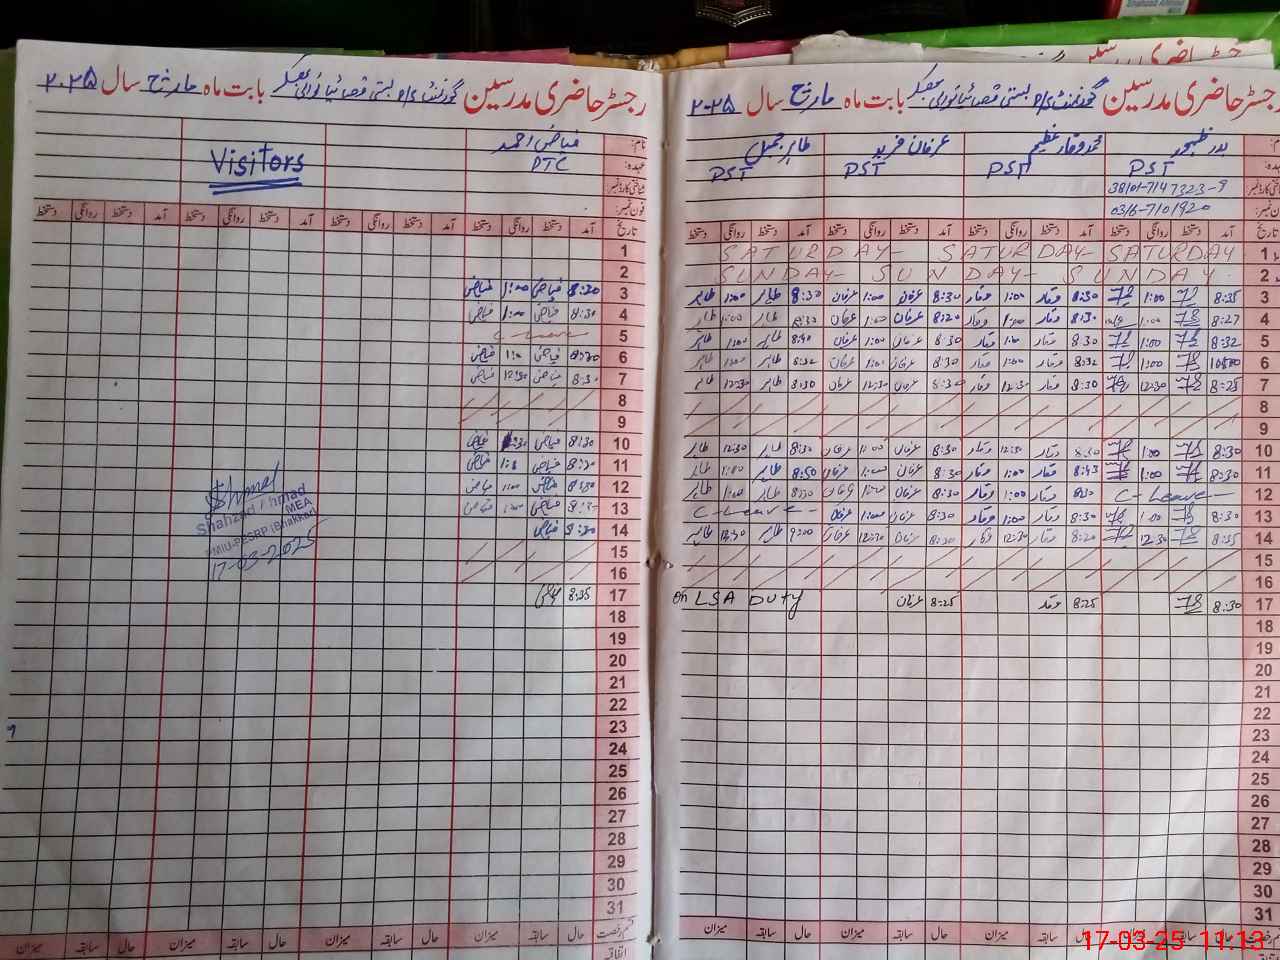 رجسٹر حاضری مدرسین گورنمنٹ p/s بستی بابت ماہ مارچ سال ۲۰۲۵
نام: بدر ظہیر محمد وقار عظیم عرفان فرید طاہر جمیل
عہدہ: PST PST PST PST
شناختی کارڈ نمبر: 38101-7147323-9
فون نمبر: 0316-7101920
تاریخ آمد دستخط روانگی دستخط آمد دستخط روانگی دستخط آمد دستخط روانگی دستخط آمد دستخط روانگی دستخط
1 SATURDAY- SATURDAY- SATURDAY
2 SUNDAY- SUNDAY- SUNDAY
3 8:35 1:00 8:30 وقار 1:00 وقار 8:30 عرفان 1:00 عرفان 8:30 طاہر 1:00 طاہر
4 8:27 1:00 8:30 وقار 1:00 وقار 8:20 عرفان 1:00 عرفان 8:30 طاہر 1:00 طاہر
5 8:32 1:00 8:30 وقار 1:00 وقار 8:30 عرفان 1:00 عرفان طاہر 1:00 طاہر
6 1:00 8:32 وقار 1:00 وقار 8:30 عرفان 1:00 عرفان 8:32 طاہر 1:00 طاہر
7 8:25 12:30 8:30 وقار 12:30 وقار 8:30 عرفان 12:30 عرفان 8:30 طاہر 12:30 طاہر
8
9
10 8:30 1:00 8:30 وقار 12:30 وقار 8:30 عرفان 1:00 عرفان 8:30 طاہر 12:30 طاہر
11 8:30 1:00 8:43 وقار 1:00 وقار 8:30 عرفان 1:00 عرفان 8:50 طاہر 1:00 طاہر
12 C-Leave- 8:30 وقار 1:00 وقار 8:30 عرفان 1:00 عرفان 8:30 طاہر 1:00 طاہر
13 8:30 1:00 8:30 وقار 1:00 وقار 8:30 عرفان 1:00 عرفان C-Leave-
14 8:35 12:30 8:20 وقار 12:30 وقار 8:20 عرفان 12:30 عرفان 9:00 طاہر 12:30 طاہر
15
16
17 8:30 8:25 وقار 8:25 عرفان on LSA DUTY
18
19
20
21
22
23
24
25
26
27
28
29
30
31
حال سابقہ میزان حال سابقہ میزان حال سابقہ میزان حال سابقہ میزان
17-03-25 11:13
رجسٹر حاضری مدرسین گورنمنٹ p/s بستی بابت ماہ مارچ سال ۲۰۲۵
نام: فیاض احمد
عہدہ: PTC
Visitors
شناختی کارڈ نمبر:
فون نمبر:
تاریخ آمد دستخط روانگی دستخط آمد دستخط روانگی دستخط آمد دستخط روانگی دستخط آمد دستخط روانگی دستخط
1
2
3 8:30 فیاض 1:00 فیاض
4 8:30 فیاض 1:00 فیاض
5 C-Leave
6 8:20 فیاض 1:0 فیاض
7 8:30 فیاض 12:30 فیاض
8
9
10 8:30 فیاض فیاض
11 8:30 فیاض فیاض
12 8:30 فیاض 1:00 فیاض
13 فیاض 1:00 فیاض
14 8:30 فیاض
15
16
17 8:35
18
19
20
21
22
23
24
25
26
27
28
29
30
31
Shahzad Ahmad
MEA
PMIU-PESRP (Bhakkar)
17-03-2025
رخصت حال سابقہ میزان حال سابقہ میزان حال سابقہ میزان حال سابقہ میزان
اتفاقیہ